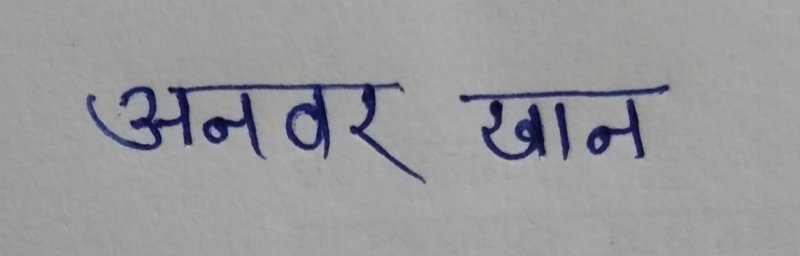 अनवर खान